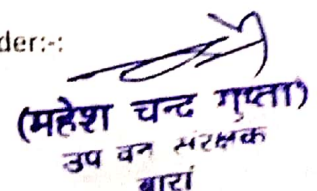 der:-:
(महेश चन्द गुप्ता)
उप वन संरक्षक
बारां